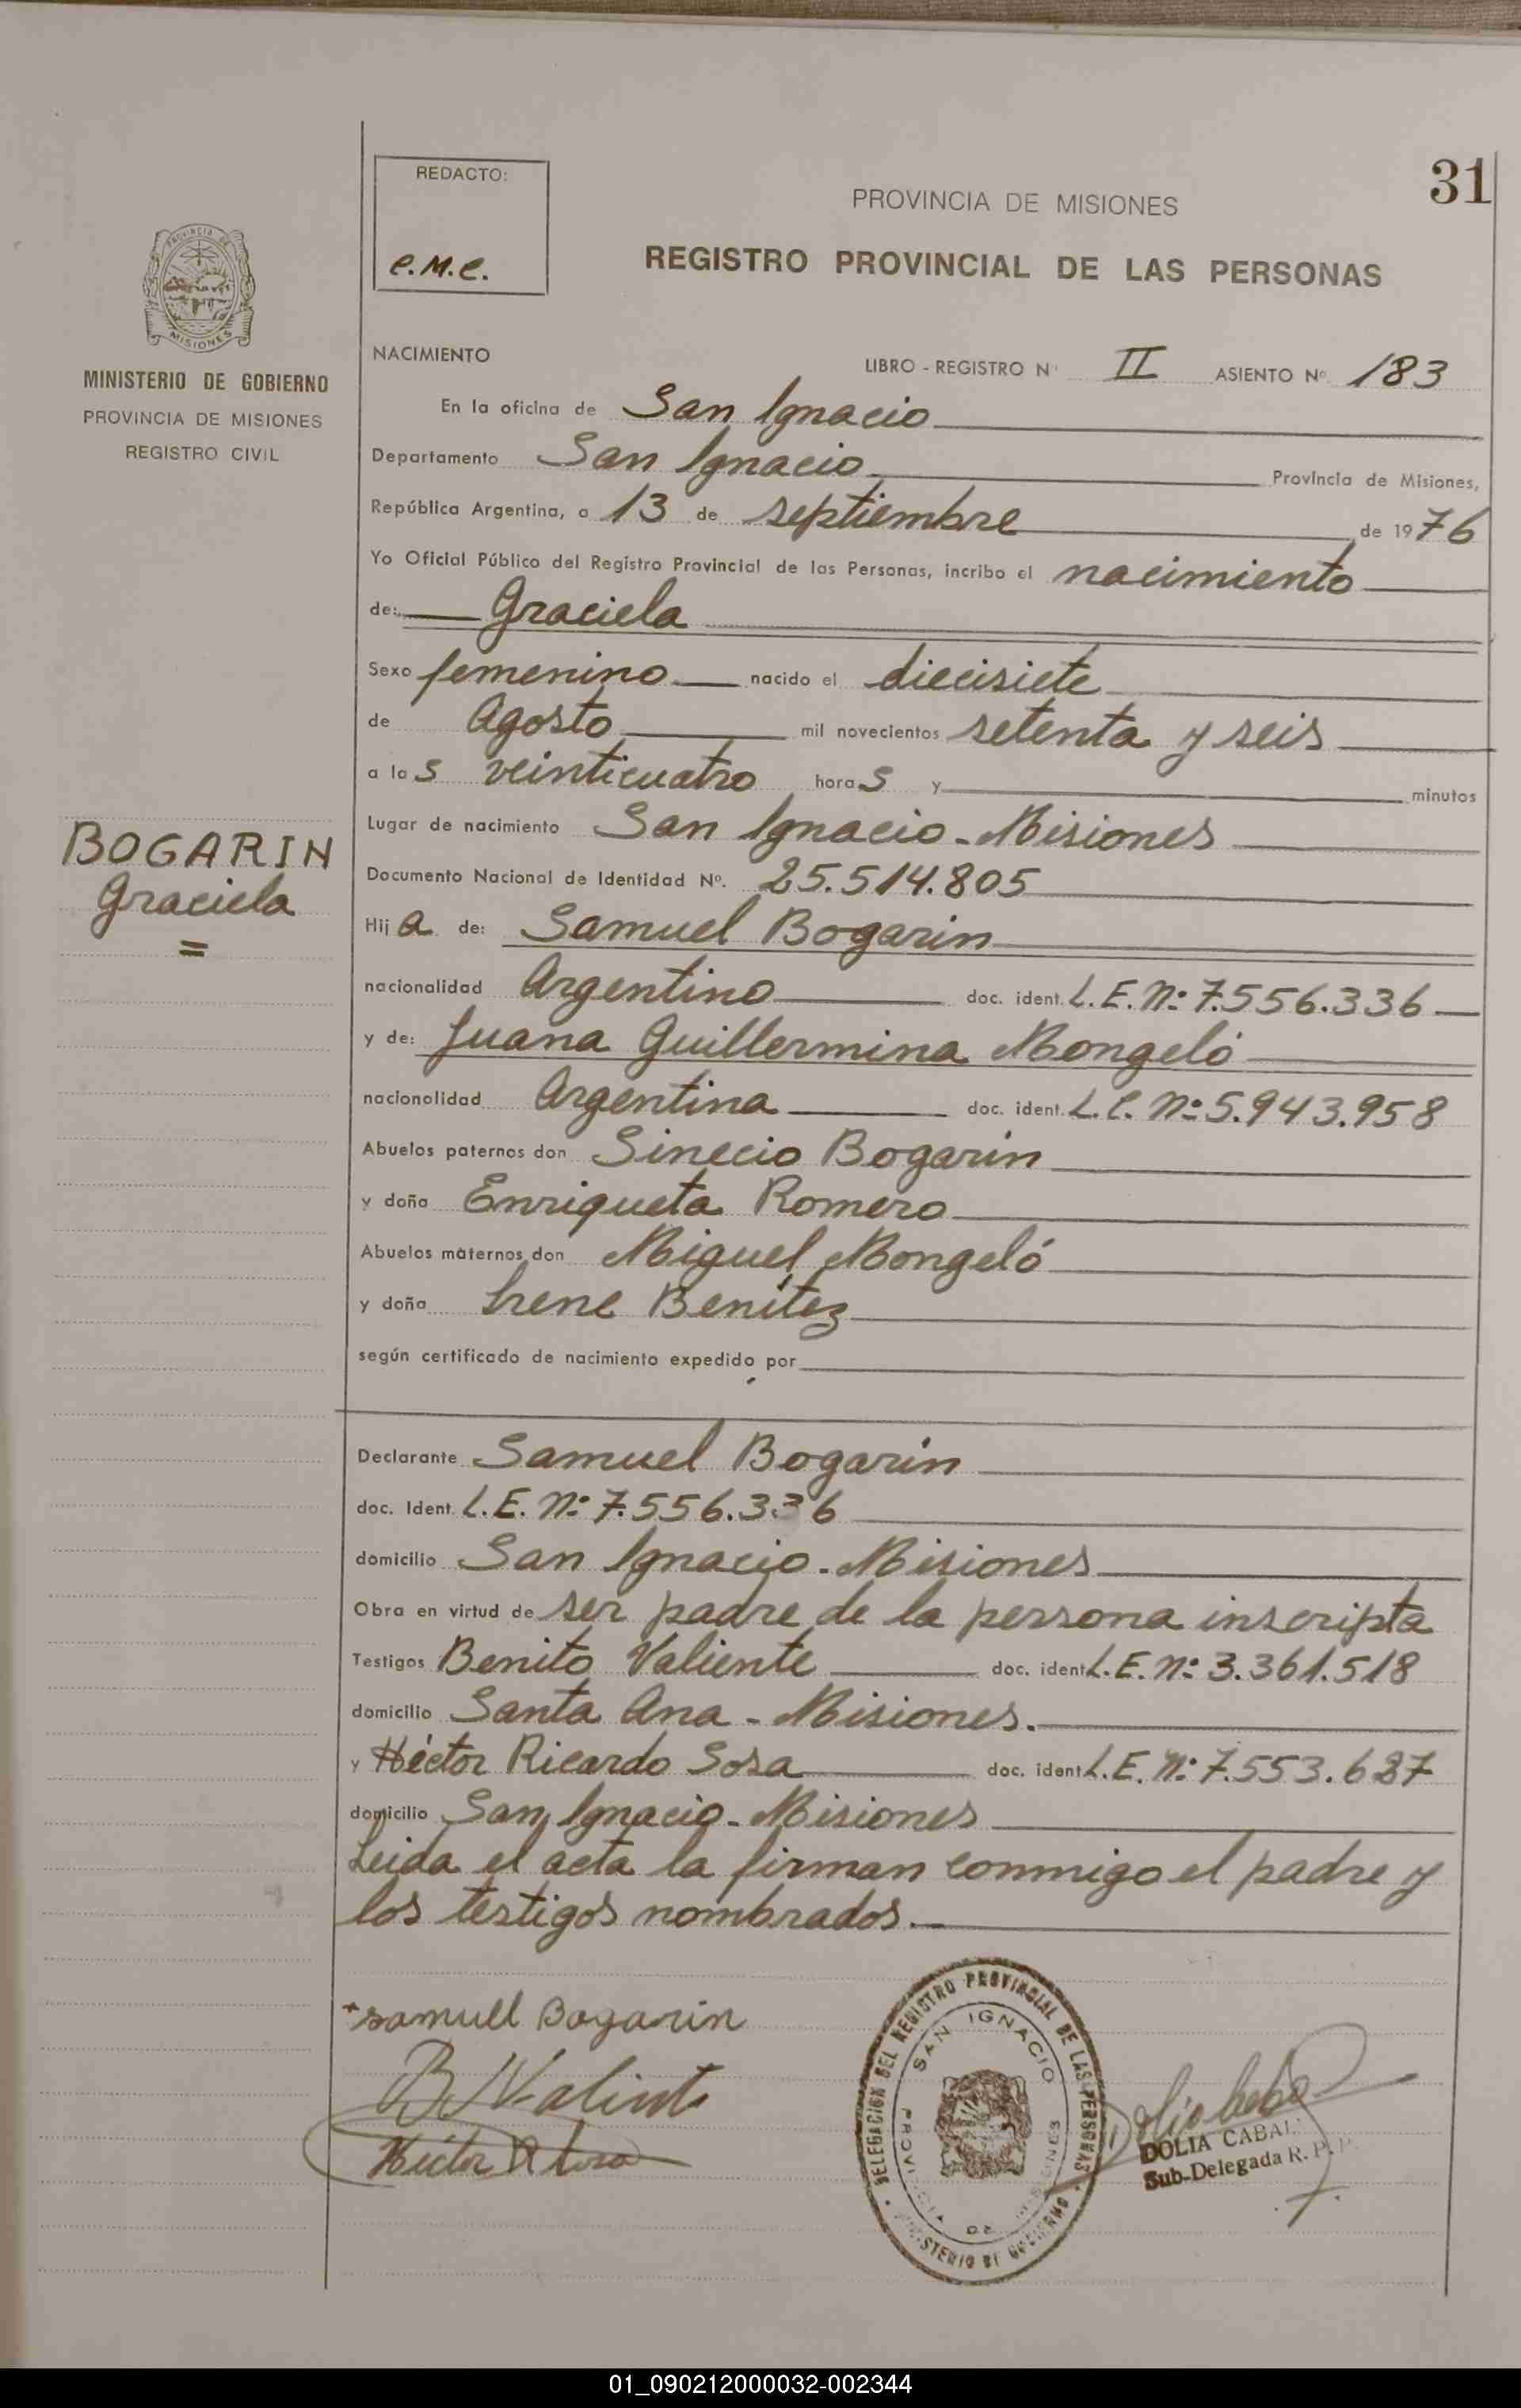 31
REDACTO:
e.M.e.
PROVINCIA DE MISIONES
REGISTRO PROVINCIAL DE LAS PERSONAS
PROVINCIA DE
MISIONES
MINISTERIO DE GOBIERNO
PROVINCIA DE MISIONES
REGISTRO CIVIL
NACIMIENTO
LIBRO - REGISTRO Nº II ASIENTO Nº 183
En la oficina de San Ignacio
Departamento San Ignacio Provincia de Misiones,
República Argentina, a 13 de septiembre de 1976
Yo Oficial Público del Registro Provincial de las Personas, incribo el nacimiento
de: Graciela
Sexo femenino nacido el diecisiete
de Agosto mil novecientos setenta y seis
a las veinticuatro horas y minutos
Lugar de nacimiento San Ignacio - Misiones
BOGARIN
Graciela
=
Documento Nacional de Identidad Nº. 25.514.805
Hija de: Samuel Bogarin
nacionalidad Argentino doc. ident. L.E. Nº 7.556.336
y de: Juana Guillermina Mongeló
nacionalidad Argentina doc. ident. L.C. Nº 5.943.958
Abuelos paternos don Sinecio Bogarin
y doña Enriqueta Romero
Abuelos maternos don Miguel Mongeló
y doña Irene Benítez
según certificado de nacimiento expedido por
Declarante Samuel Bogarin
doc. Ident. L.E. Nº 7.556.336
domicilio San Ignacio - Misiones
Obra en virtud de ser padre de la persona inscripta
Testigos Benito Valiente doc. ident L.E. nº 3.361.518
domicilio Santa Ana - Misiones.
y Héctor Ricardo Sosa doc. ident L.E. Nº 7.553.627
domicilio San Ignacio - Misiones
Leida el acta la firman conmigo el padre y
los testigos nombrados.
samuel Bogarin
B Valiente
Héctor R Sosa
DELEGACION DEL REGISTRO PROVINCIAL DE LAS PERSONAS
SAN IGNACIO
MINISTERIO DE GOBIERNO
DOLIA CABAL
Sub-Delegada R. P. P.
01_090212000032-002344